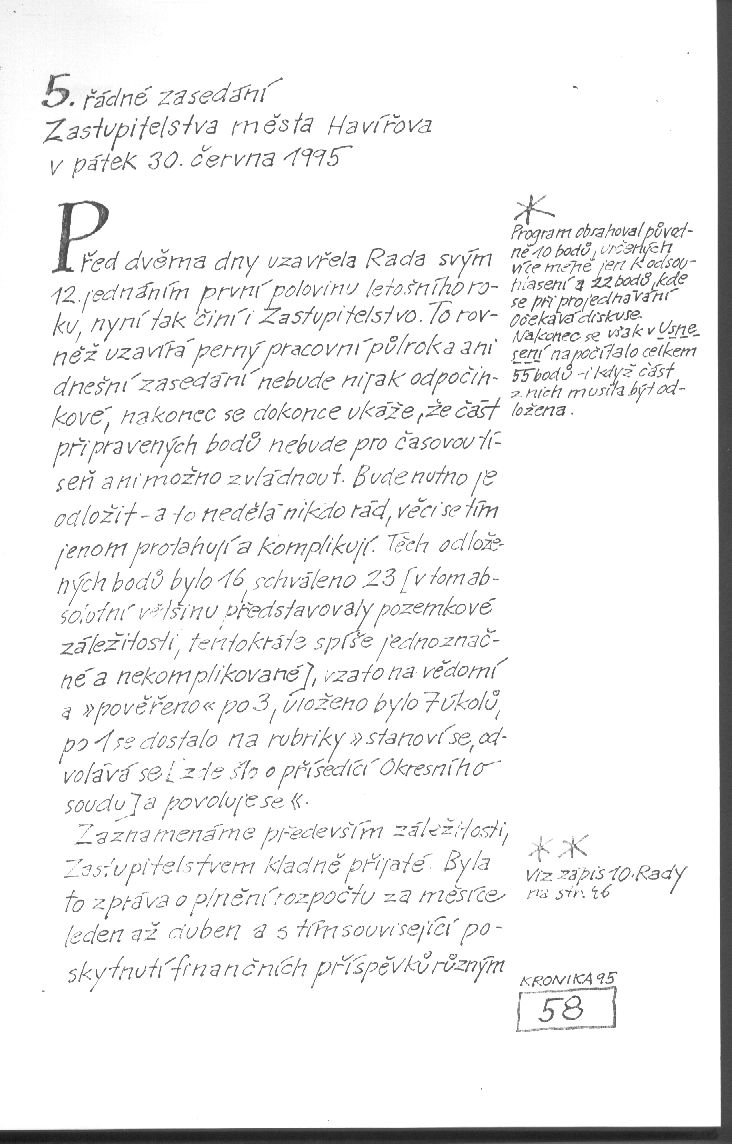 5. řádné zasedání
Zastupitelstva města Havířova
v pátek 30. června 1995
Před dvěma dny uzavřela Rada svým
12. jednáním první polovinu letošního ro-
ku, nyní tak činí i Zastupitelstvo. To rov-
něž uzavírá perný pracovní půlrok a ani
dnešní zasedání nebude nijak odpočin-
kové, nakonec se dokonce ukáže, že část
připravených bodů nebude pro časovou tí-
seň ani možno zvládnout. Bude nutno je
odložit - a to nedělá nikdo rád, věci se tím
jenom protahují a komplikují. Těch odlože-
ných bodů bylo 16, schváleno 23 [v tom ab-
solutní většinu představovaly pozemkové
záležitosti, tentokráte spíše jednoznač-
né a nekomplikované], vzato na vědomí
a »pověřeno« po 3, uloženo bylo 7 úkolů,
po 1 se dostalo na rubriky »stanoví se, od-
volává se [zde šlo o přísedící Okresního
soudu] a povoluje se«.
Zaznamenáme především záležitosti,
Zastupitelstvem kladně přijaté. Byla
to zpráva o plnění rozpočtu za měsíce
leden až duben a s tím související po-
skytnutí finančních příspěvků různým
*
Program obsahoval původ-
ně 10 bodů, určených
více méně jen k odsou-
hlasení a 22 bodů, kde
se při projednávání
očekává diskuse.
Nakonec se však v Usne-
sení napočítalo celkem
55 bodů - i když část
z nich musila být od-
ložena.
**
Viz zápis 10. Rady
na str. 46
KRONIKA 95
58